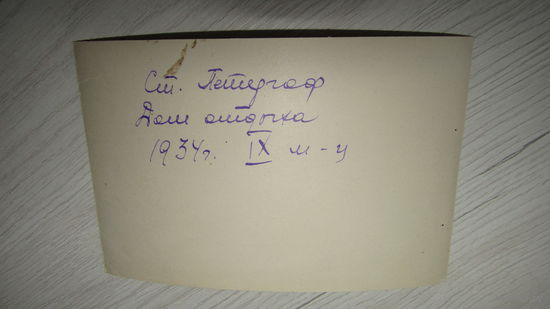 Ст. Петергоф
Дом отдыха
1934г. IX м-ц